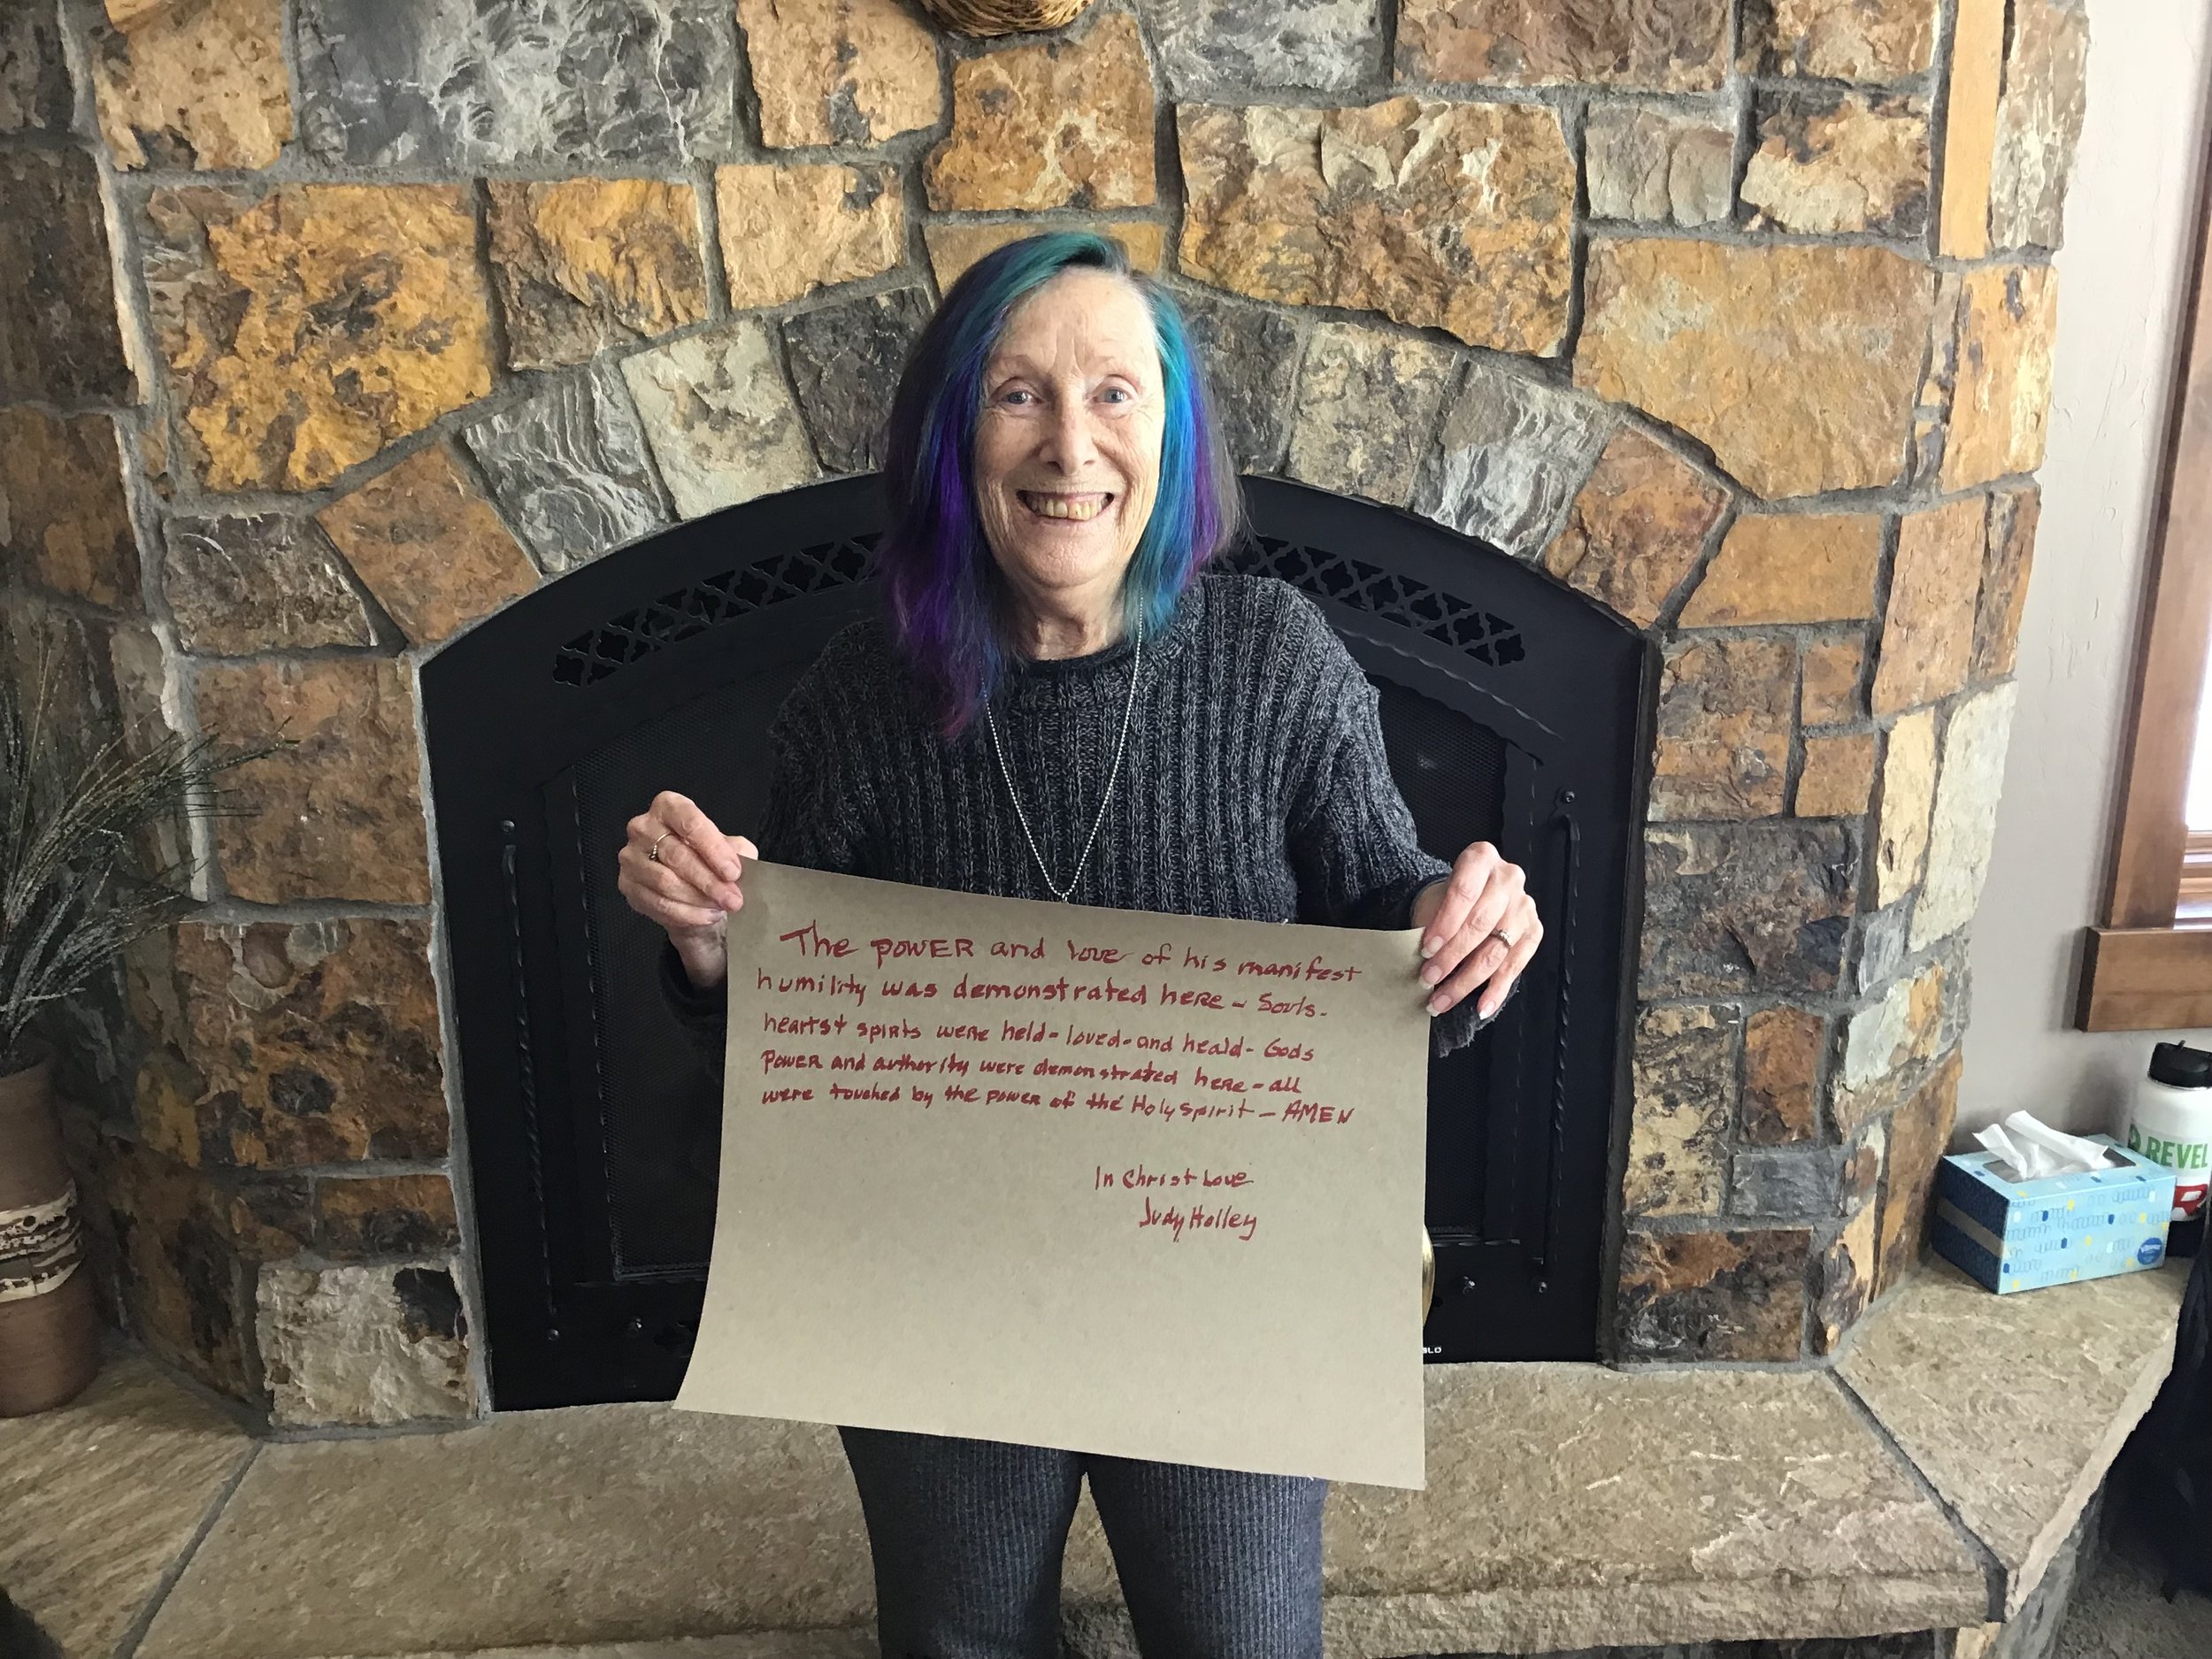 The POWER and love of his manifest
humility was demonstrated here - Souls -
hearts + spirits were held - loved - and heald - Gods
Power and authority were demonstrated here - all
were touched by the power of the Holy Spirit - AMEN
In Christ Love
Judy Holley
REVEL
Kleenex